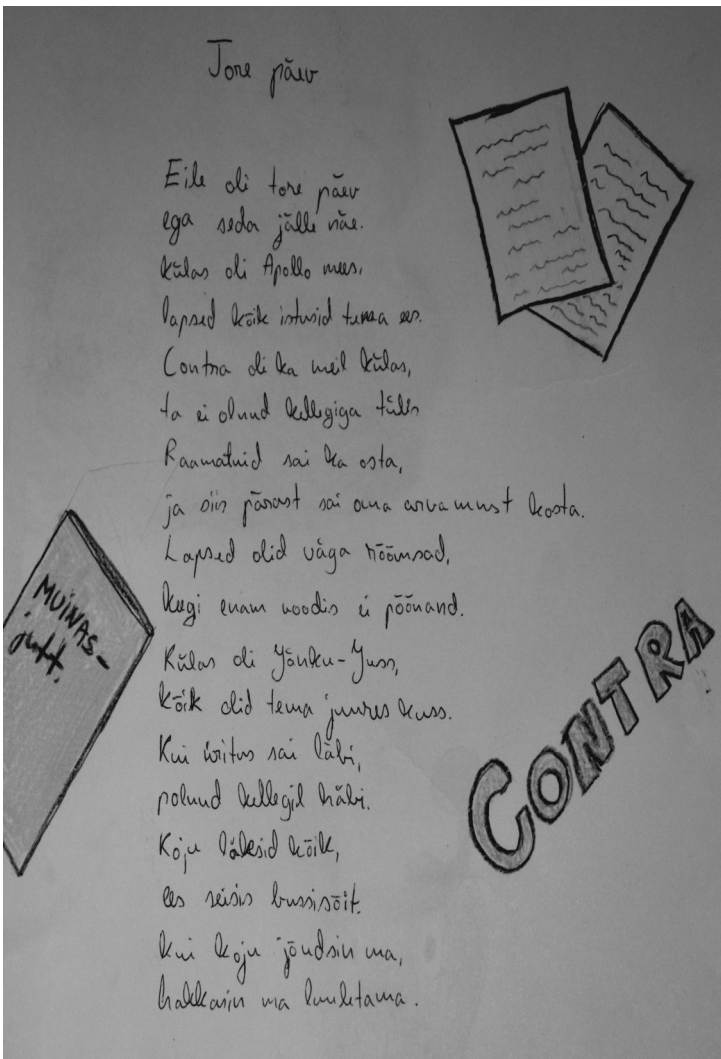 Tore päev
Eile oli tore päev
ega seda jälle näe.
külas oli Apollo mees,
lapsed kõik istusid tema ees.
Contra oli ka meil külas,
ta ei olnud kellegiga tülis
Raamatuid sai ka osta,
ja siis pärast sai oma arvamust kosta.
Lapsed olid väga rõõmsad,
keegi enam voodis ei põõnand.
Külas oli Jänku-Juss,
kõik olid tema juures kuss.
Kui üritus sai läbi,
polnud kellegil häbi.
Koju läksid kõik,
ees seisis bussisõit.
kui koju jõudsin ma,
hakkasin ma luuletama.
MUINAS-
jutt.
CONTRA